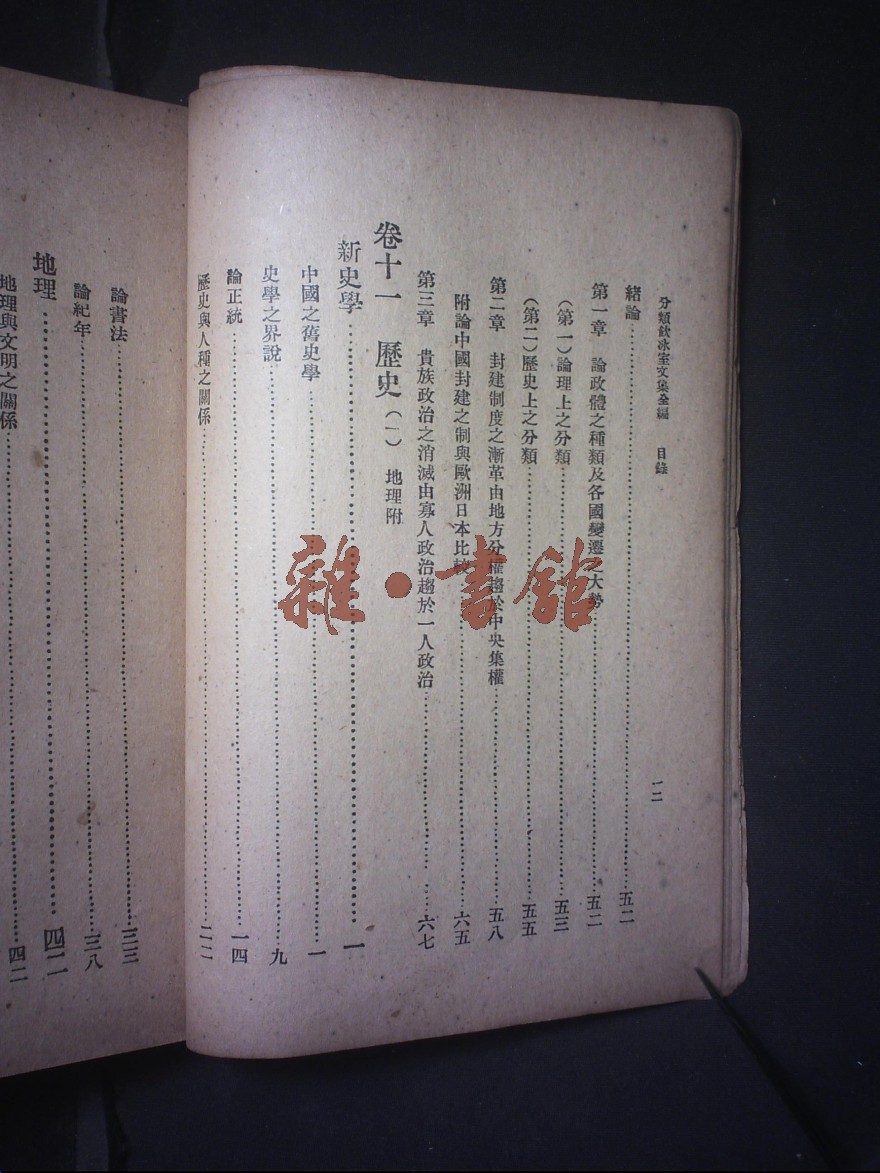 分類飲冰室文集全編　目錄　一二
緒論……五二
第一章　論政體之種類及各國變遷之大勢……五二
（第一）論理上之分類……五三
（第二）歷史上之分類……五五
第二章　封建制度之漸革由地方分權趨於中央集權……五八
附論中國封建之制與歐洲日本比較……六五
第三章　貴族政治之消滅由寡人政治趨於一人政治……六七
卷十一　歷史（一）　地理附
新史學……一
中國之舊史學……一
史學之界說……九
論正統……一四
歷史與人種之關係……二二
論書法……三三
論紀年……三八
地理……四二
地理與文明之關係……四二
雜·書館